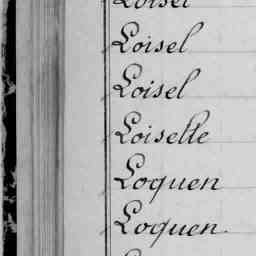 Loisel
Loisel
Loisel
Loiselle
Loquen
Loquen